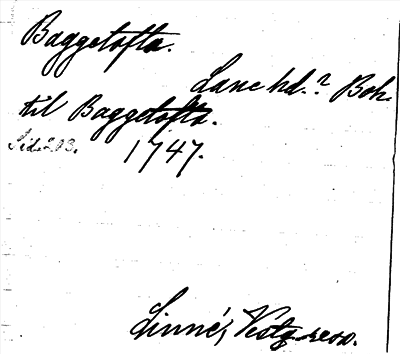 Baggetofta.
Lane hd.? Boh.
til Baggetofta.
Sid. 203. 1747.
Linné, Västg. resa.